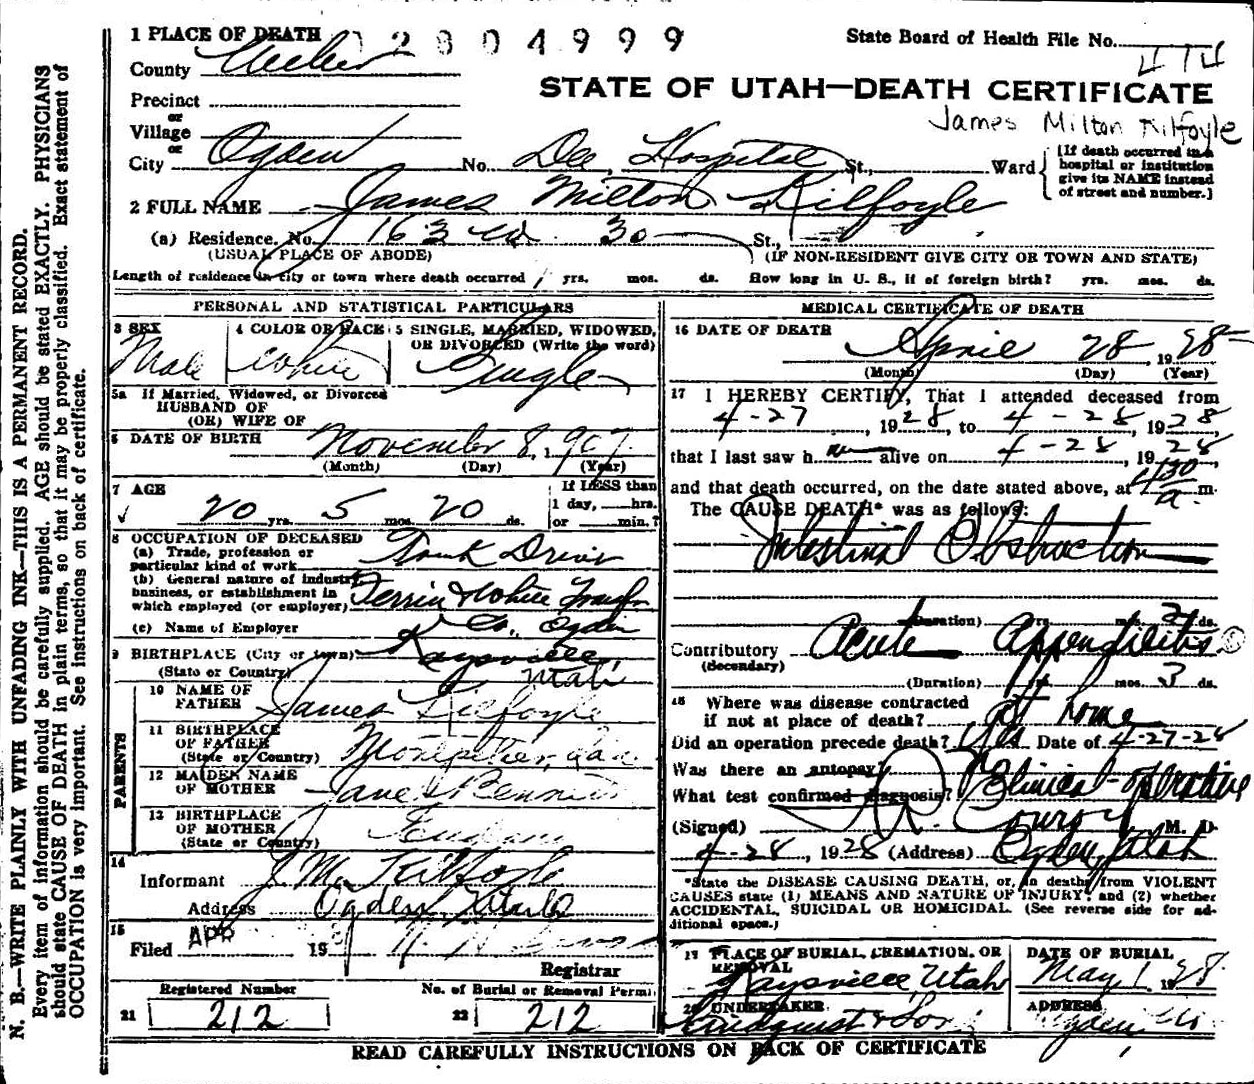 N. B.—WRITE PLAINLY WITH UNFADING INK—THIS IS A PERMANENT RECORD.
Every item of information should be carefully supplied. AGE should be stated EXACTLY. PHYSICIANS
should state CAUSE OF DEATH in plain terms, so that it may be properly classified. Exact statement of
OCCUPATION is very important. See instructions on back of certificate.
1 PLACE OF DEATH
2804999
State Board of Health File No. 474
County Weber
STATE OF UTAH—DEATH CERTIFICATE
Precinct
James Milton Kilfoyle
or
Village
or
City Ogden No. Dee Hospital St., Ward
[If death occurred in a hospital or institution give its NAME instead of street and number.]
2 FULL NAME James Milton Kilfoyle
(a) Residence. No. 163 30 St.,
(USUAL PLACE OF ABODE) (IF NON-RESIDENT GIVE CITY OR TOWN AND STATE)
Length of residence in city or town where death occurred yrs. mos. ds. How long in U. S., if of foreign birth? yrs. mos. ds.
PERSONAL AND STATISTICAL PARTICULARS
3 SEX Male
4 COLOR OR RACE White
5 SINGLE, MARRIED, WIDOWED, OR DIVORCED (Write the word) Single
5a If Married, Widowed, or Divorced
HUSBAND OF
(OR) WIFE OF
6 DATE OF BIRTH November 8, 1907
(Month) (Day) (Year)
7 AGE 20 yrs. 5 mos. 20 ds.
If LESS than 1 day, hrs. or min.?
8 OCCUPATION OF DECEASED
(a) Trade, profession or particular kind of work Truck Driver
(b) General nature of industry, business, or establishment in which employed (or employer)
(c) Name of Employer Co., Ogden
9 BIRTHPLACE (City or town) Kaysville,
(State or Country) Utah
PARENTS
10 NAME OF FATHER James Kilfoyle
11 BIRTHPLACE OF FATHER (State or Country) Montpelier, Ida.
12 MAIDEN NAME OF MOTHER Jane Bennett
13 BIRTHPLACE OF MOTHER (State or Country)
14 Informant J. M. Kilfoyle
Address Ogden, Utah
15 Filed APR 19
Registrar
Registered Number No. of Burial or Removal Permit
21 212 22 212
MEDICAL CERTIFICATE OF DEATH
16 DATE OF DEATH April 28 1928
(Month) (Day) (Year)
17 I HEREBY CERTIFY, That I attended deceased from
4-27, 1928, to 4-28, 1928
that I last saw h alive on 4-28, 1928
and that death occurred, on the date stated above, at 430 a m.
The CAUSE DEATH* was as follows:
Intestinal Obstruction
(Duration) yrs. mos. 2 ds.
Contributory Acute Appendicitis
(Secondary)
(Duration) yrs. mos. 3 ds.
18 Where was disease contracted
if not at place of death? At home
Did an operation precede death? Yes Date of 4-27-28
Was there an autopsy?
What test confirmed diagnosis? Clinical-operative
(Signed) M. D.
4-28, 1928 (Address) Ogden, Utah
*State the DISEASE CAUSING DEATH, or, in deaths from VIOLENT
CAUSES state (1) MEANS AND NATURE OF INJURY; and (2) whether
ACCIDENTAL, SUICIDAL OR HOMICIDAL. (See reverse side for additional space.)
19 PLACE OF BURIAL, CREMATION, OR REMOVAL Kaysville, Utah
DATE OF BURIAL May 1 1928
20 UNDERTAKER Lindquist & Sons
ADDRESS Ogden,
READ CAREFULLY INSTRUCTIONS ON BACK OF CERTIFICATE